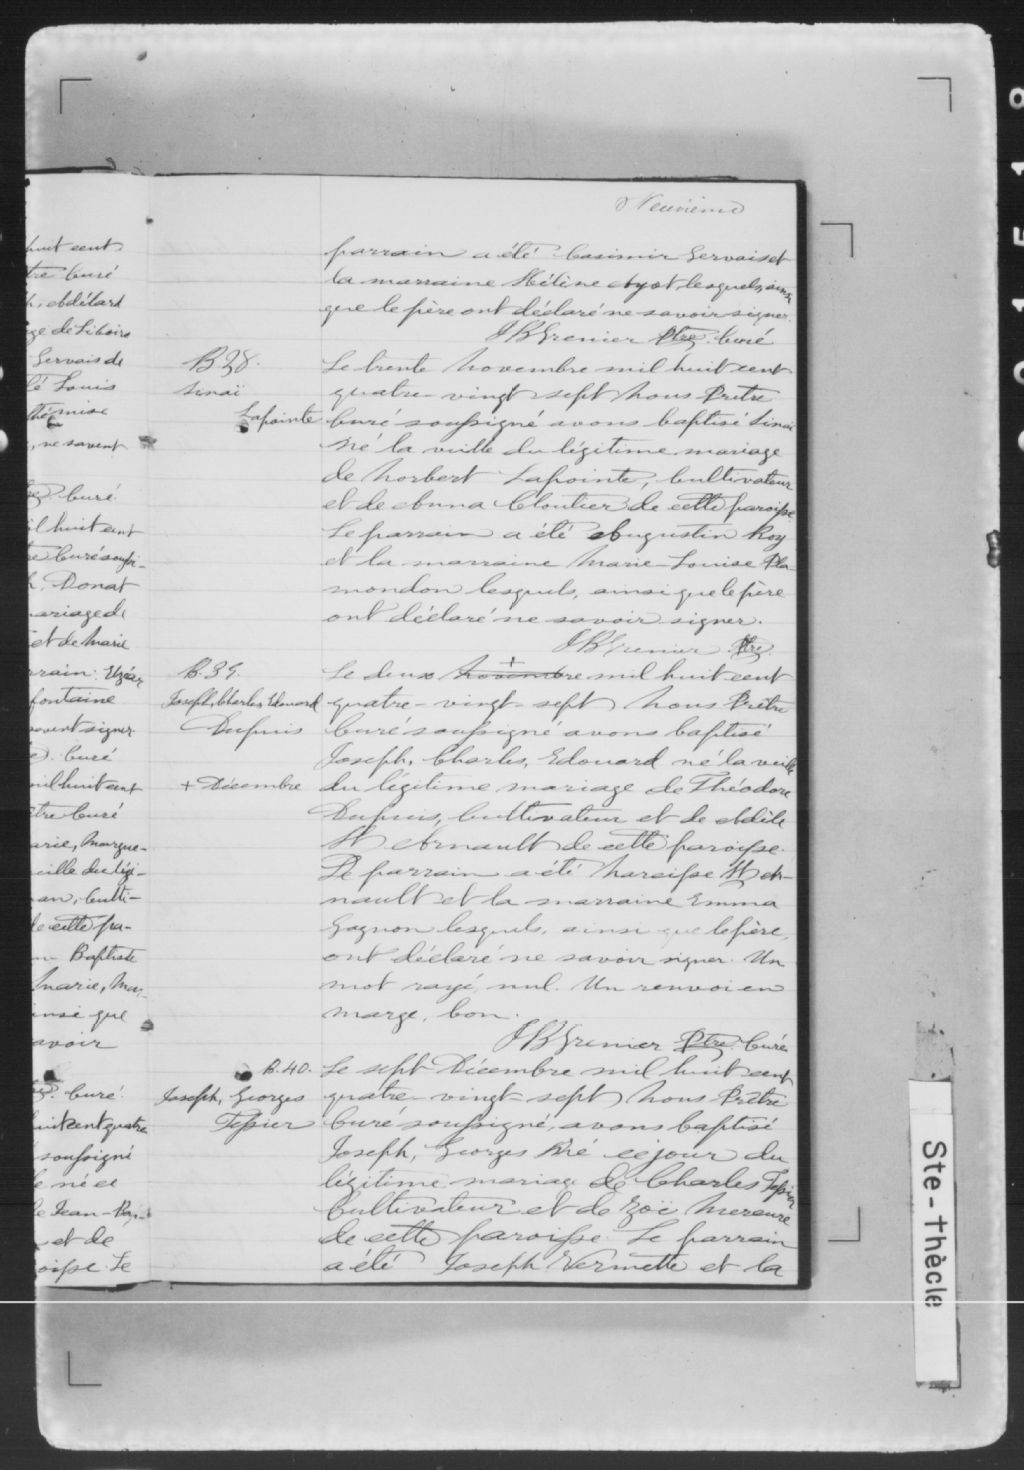 Neuvième
parrain a été Casimir Gervais et
la marraine Hélène Ayot, lesquels, ainsi
que le père ont déclaré ne savoir signer.
J B Grenier Ptre. Curé
B 38.
Sinaï
Lapointe
Le trente Novembre mil huit cent
quatre-vingt sept Nous Prêtre
Curé soussigné avons baptisé Sinaï
Né la veille du légitime mariage
de Norbert Lapointe, Cultivateur
et de Anna Cloutier de cette paroisse
Le parrain a été Augustin Roy
et la marraine Marie-Louise Pla
mondon lesquels, ainsi que le père
ont déclaré ne savoir signer.
J B Grenier Ptre
B. 39.
Joseph, Charles, Edouard
Dupuis
+ Décembre
Le deux + Novembre mil huit cent
quatre-vingt-sept Nous Prêtre
Curé soussigné avons baptisé
Joseph, Charles, Edouard né la veille
du légitime mariage de Théodore
Dupuis, Cultivateur et de Adile
St Arnault de cette paroisse.
Le parrain a été Narcisse St Ar-
nault et la marraine Emma
Gagnon lesquels, ainsi que le père,
ont déclaré ne savoir signer. Un
mot rayé, nul. Un renvoi en
marge, bon.
J B Grenier Ptre. Curé
B. 40.
Joseph, Georges
Tessier
Le sept Décembre mil huit cent
quatre-vingt-sept Nous Prêtre
Curé soussigné, avons baptisé
Joseph, Georges Né ce jour du
légitime mariage de Charles Tessier
Cultivateur et de Zoë Mercure
de cette paroisse. Le parrain
a été Joseph Vermette et la
huit cent
tre Curé
h, Adélard
ge de Liboire
Gervais de
té Louis
, ne savent
Curé
il huit cent
re Curé soussi-
h, Donat
ariage de
et de Marie
rrain Elzéar
fontaine
savent signer
Curé
mil huit cent
tre Curé
arie, Margue-
eille du légi-
an, Culti-
de cette pa-
Baptiste
Marie, Mar-
insi que
avoir
Curé
huit cent quatre
soussigné
e né ce
de Jean-Bap-
et de
oisse. Le
Ste-Thècle